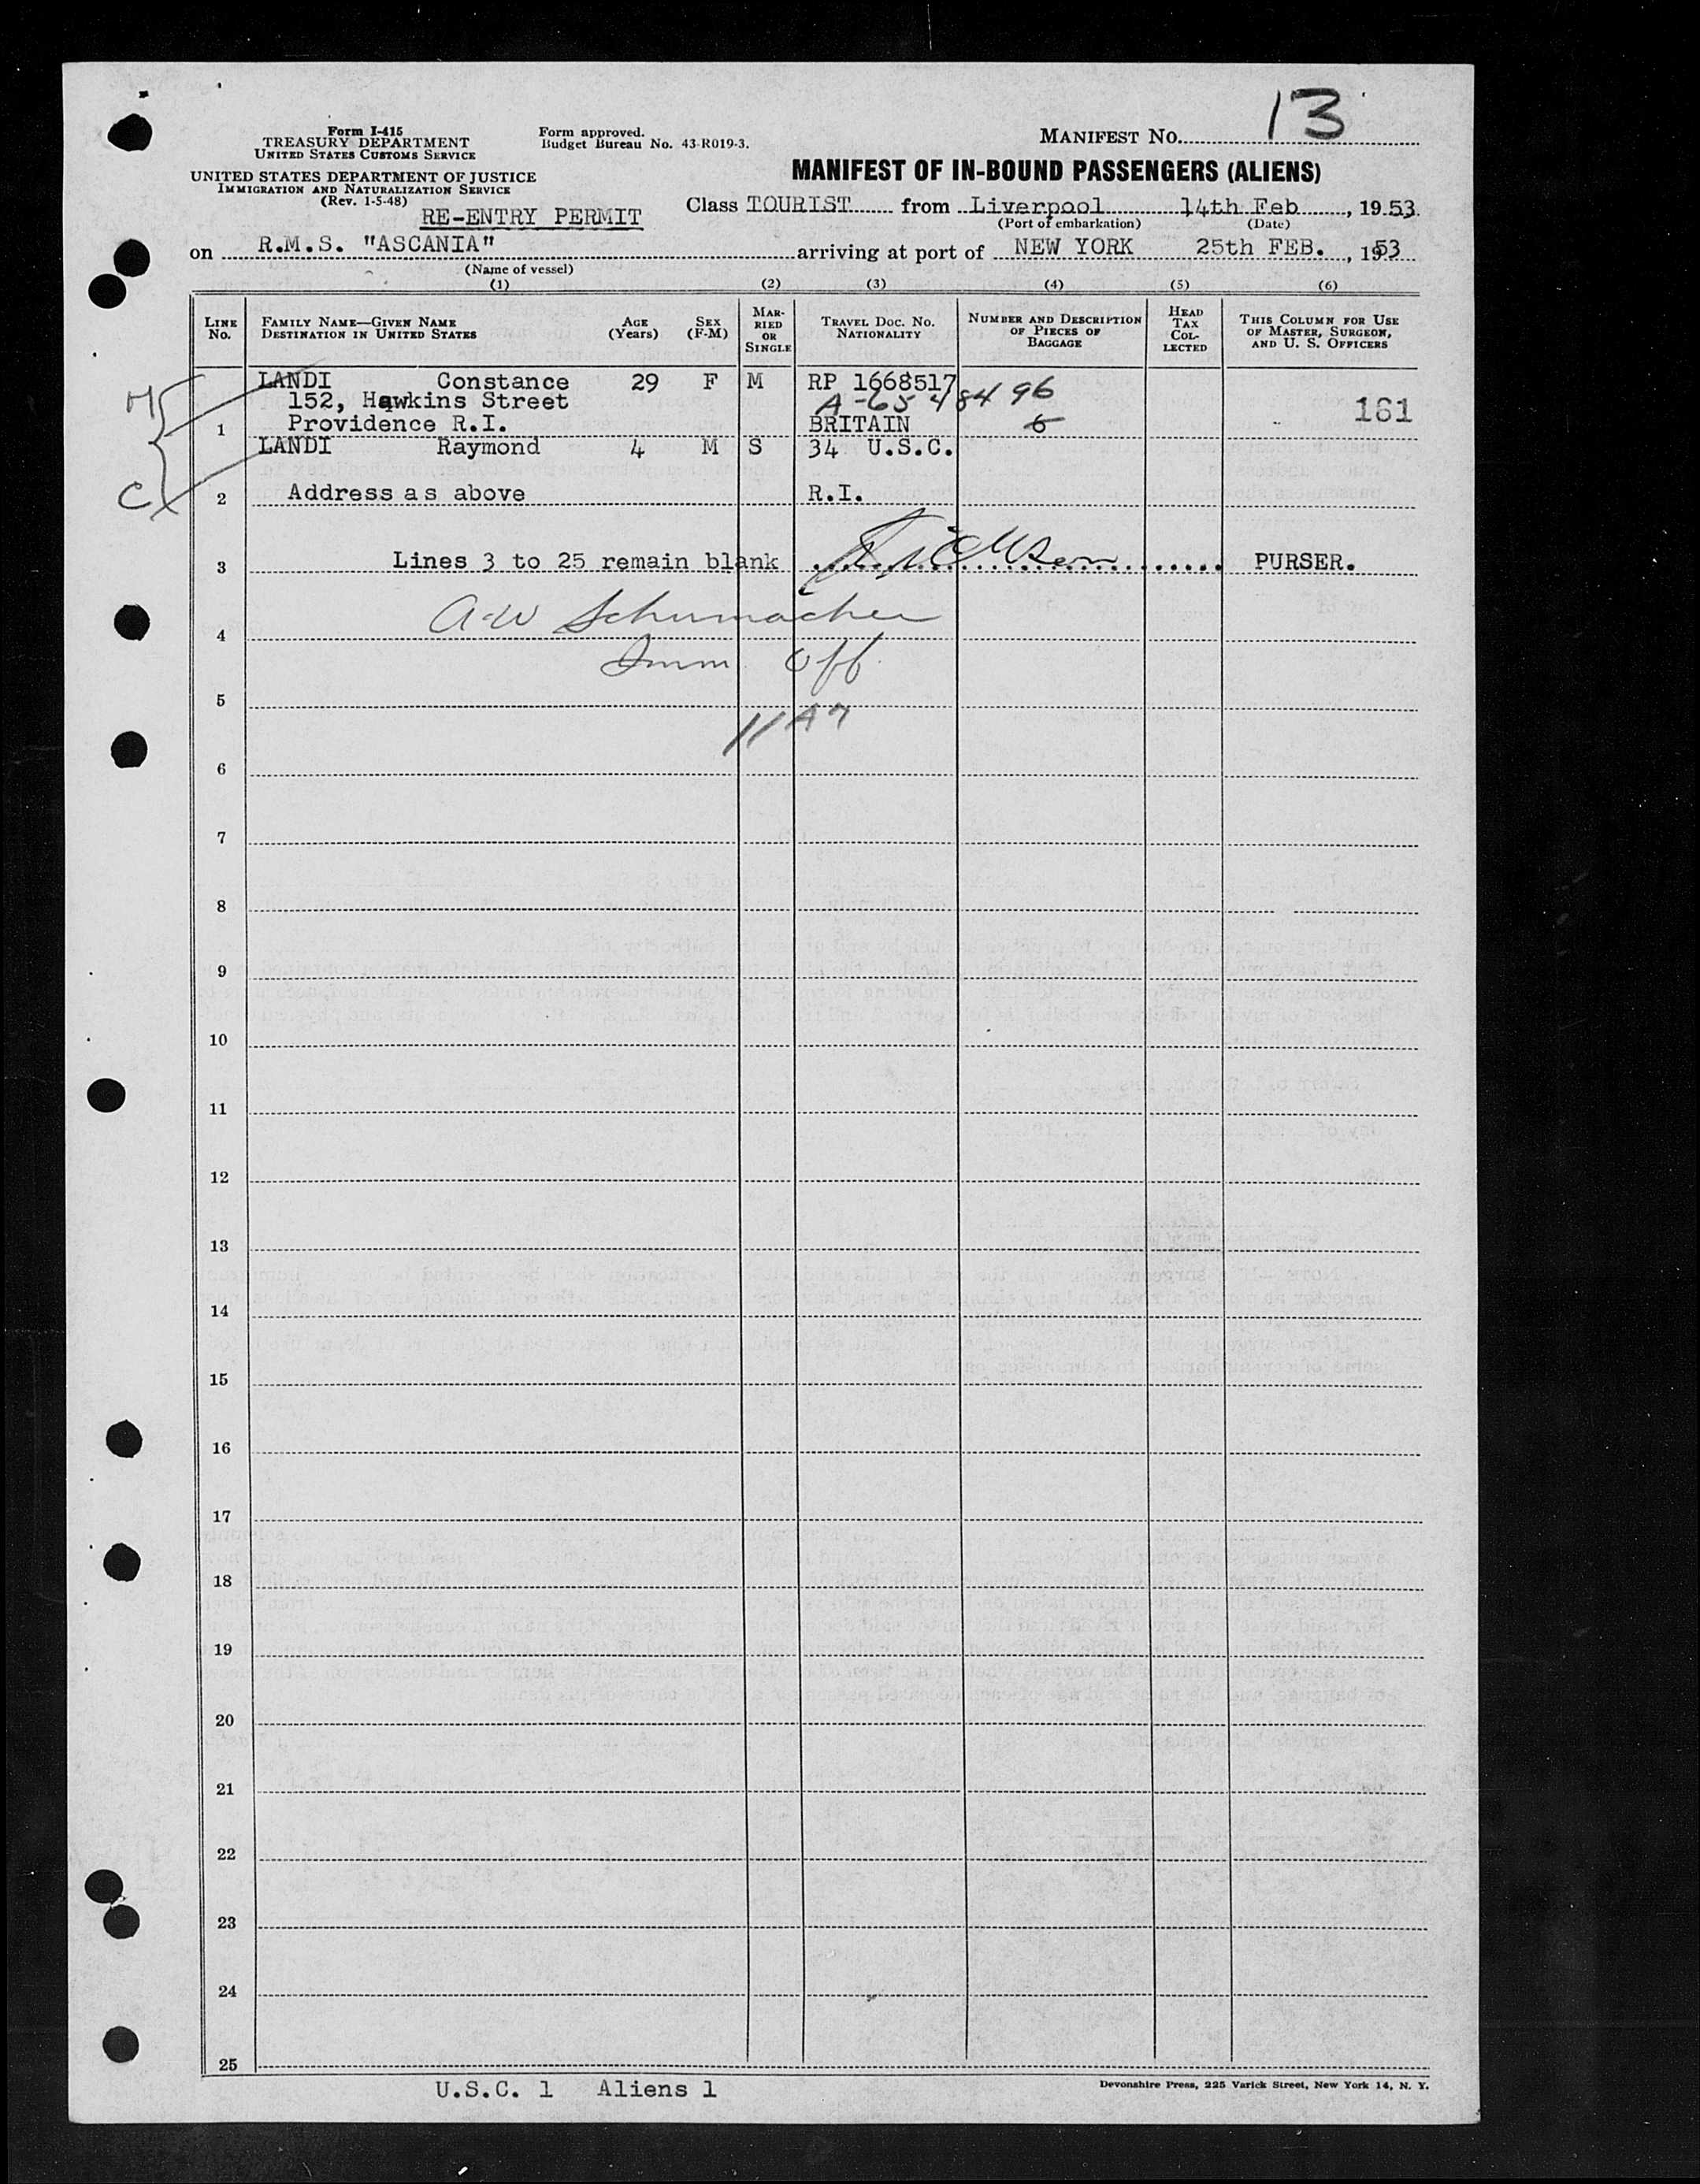 13
Form I-415
TREASURY DEPARTMENT
UNITED STATES CUSTOMS SERVICE
Form approved.
Budget Bureau No. 43-R019-3.
MANIFEST NO.
UNITED STATES DEPARTMENT OF JUSTICE
IMMIGRATION AND NATURALIZATION SERVICE
(Rev. 1-5-48)
MANIFEST OF IN-BOUND PASSENGERS (ALIENS)
RE-ENTRY PERMIT
Class TOURIST from Liverpool 14th Feb, 1953.
(Port of embarkation) (Date)
on R.M.S. "ASCANIA" arriving at port of NEW YORK 25th FEB., 1953
(Name of vessel)
(1) (2) (3) (4) (5) (6)
LINE NO.
FAMILY NAME—GIVEN NAME
DESTINATION IN UNITED STATES
AGE (Years)
SEX (F-M)
MARRIED OR SINGLE
TRAVEL DOC. NO. NATIONALITY
NUMBER AND DESCRIPTION OF PIECES OF BAGGAGE
HEAD TAX COLLECTED
THIS COLUMN FOR USE OF MASTER, SURGEON, AND U. S. OFFICERS
LANDI Constance 29 F M RP 1668517
152, Hawkins Street A-65 484 96
M 161
1 Providence R.I. BRITAIN 6
LANDI Raymond 4 M S 34 U.S.C.
C 2 Address as above R.I.
3 Lines 3 to 25 remain blank PURSER.
4 A W Schumacher
Imm Off
5
11 A7
6
7
8
9
10
11
12
13
14
15
16
17
18
19
20
21
22
23
24
25
U.S.C. 1 Aliens 1
Devonshire Press, 225 Varick Street, New York 14, N. Y.